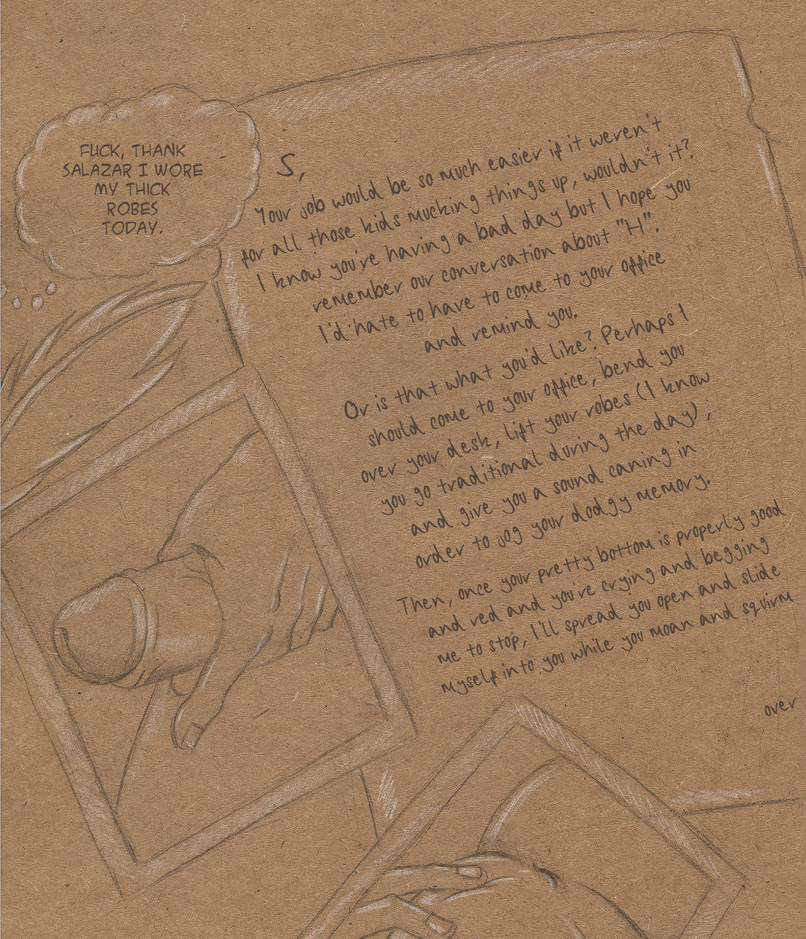 FUCK, THANK
SALAZAR I WORE
MY THICK
ROBES
TODAY.
S,
Your job would be so much easier if it weren't
for all those kids mucking things up, wouldn't it?
I know you're having a bad day but I hope you
remember our conversation about "H".
I'd hate to have to come to your office
and remind you.
Or is that what you'd like? Perhaps I
should come to your office, bend you
over your desk, lift your robes (I know
you go traditional during the day),
and give you a sound caning in
order to jog your dodgy memory.
Then, once your pretty bottom is properly good
and red and you're crying and begging
me to stop, I'll spread you open and slide
myself into you while you moan and squirm
over